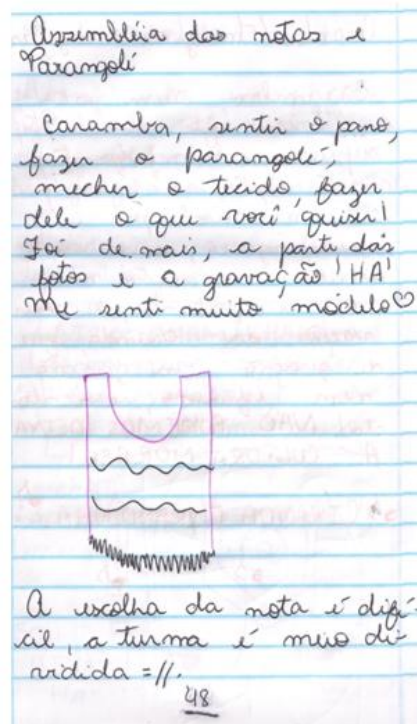 Assembléia das notas e
Parangolé
Caramba, sentir o pano,
fazer o parangolé,
mecher o tecido, fazer
dele o que você quiser!
Foi de mais, a parte das
fotos e a gravação! HA!
Me senti muito modelo♡
A escolha da nota é difí-
cil, a turma é meio di-
vidida =//.
48